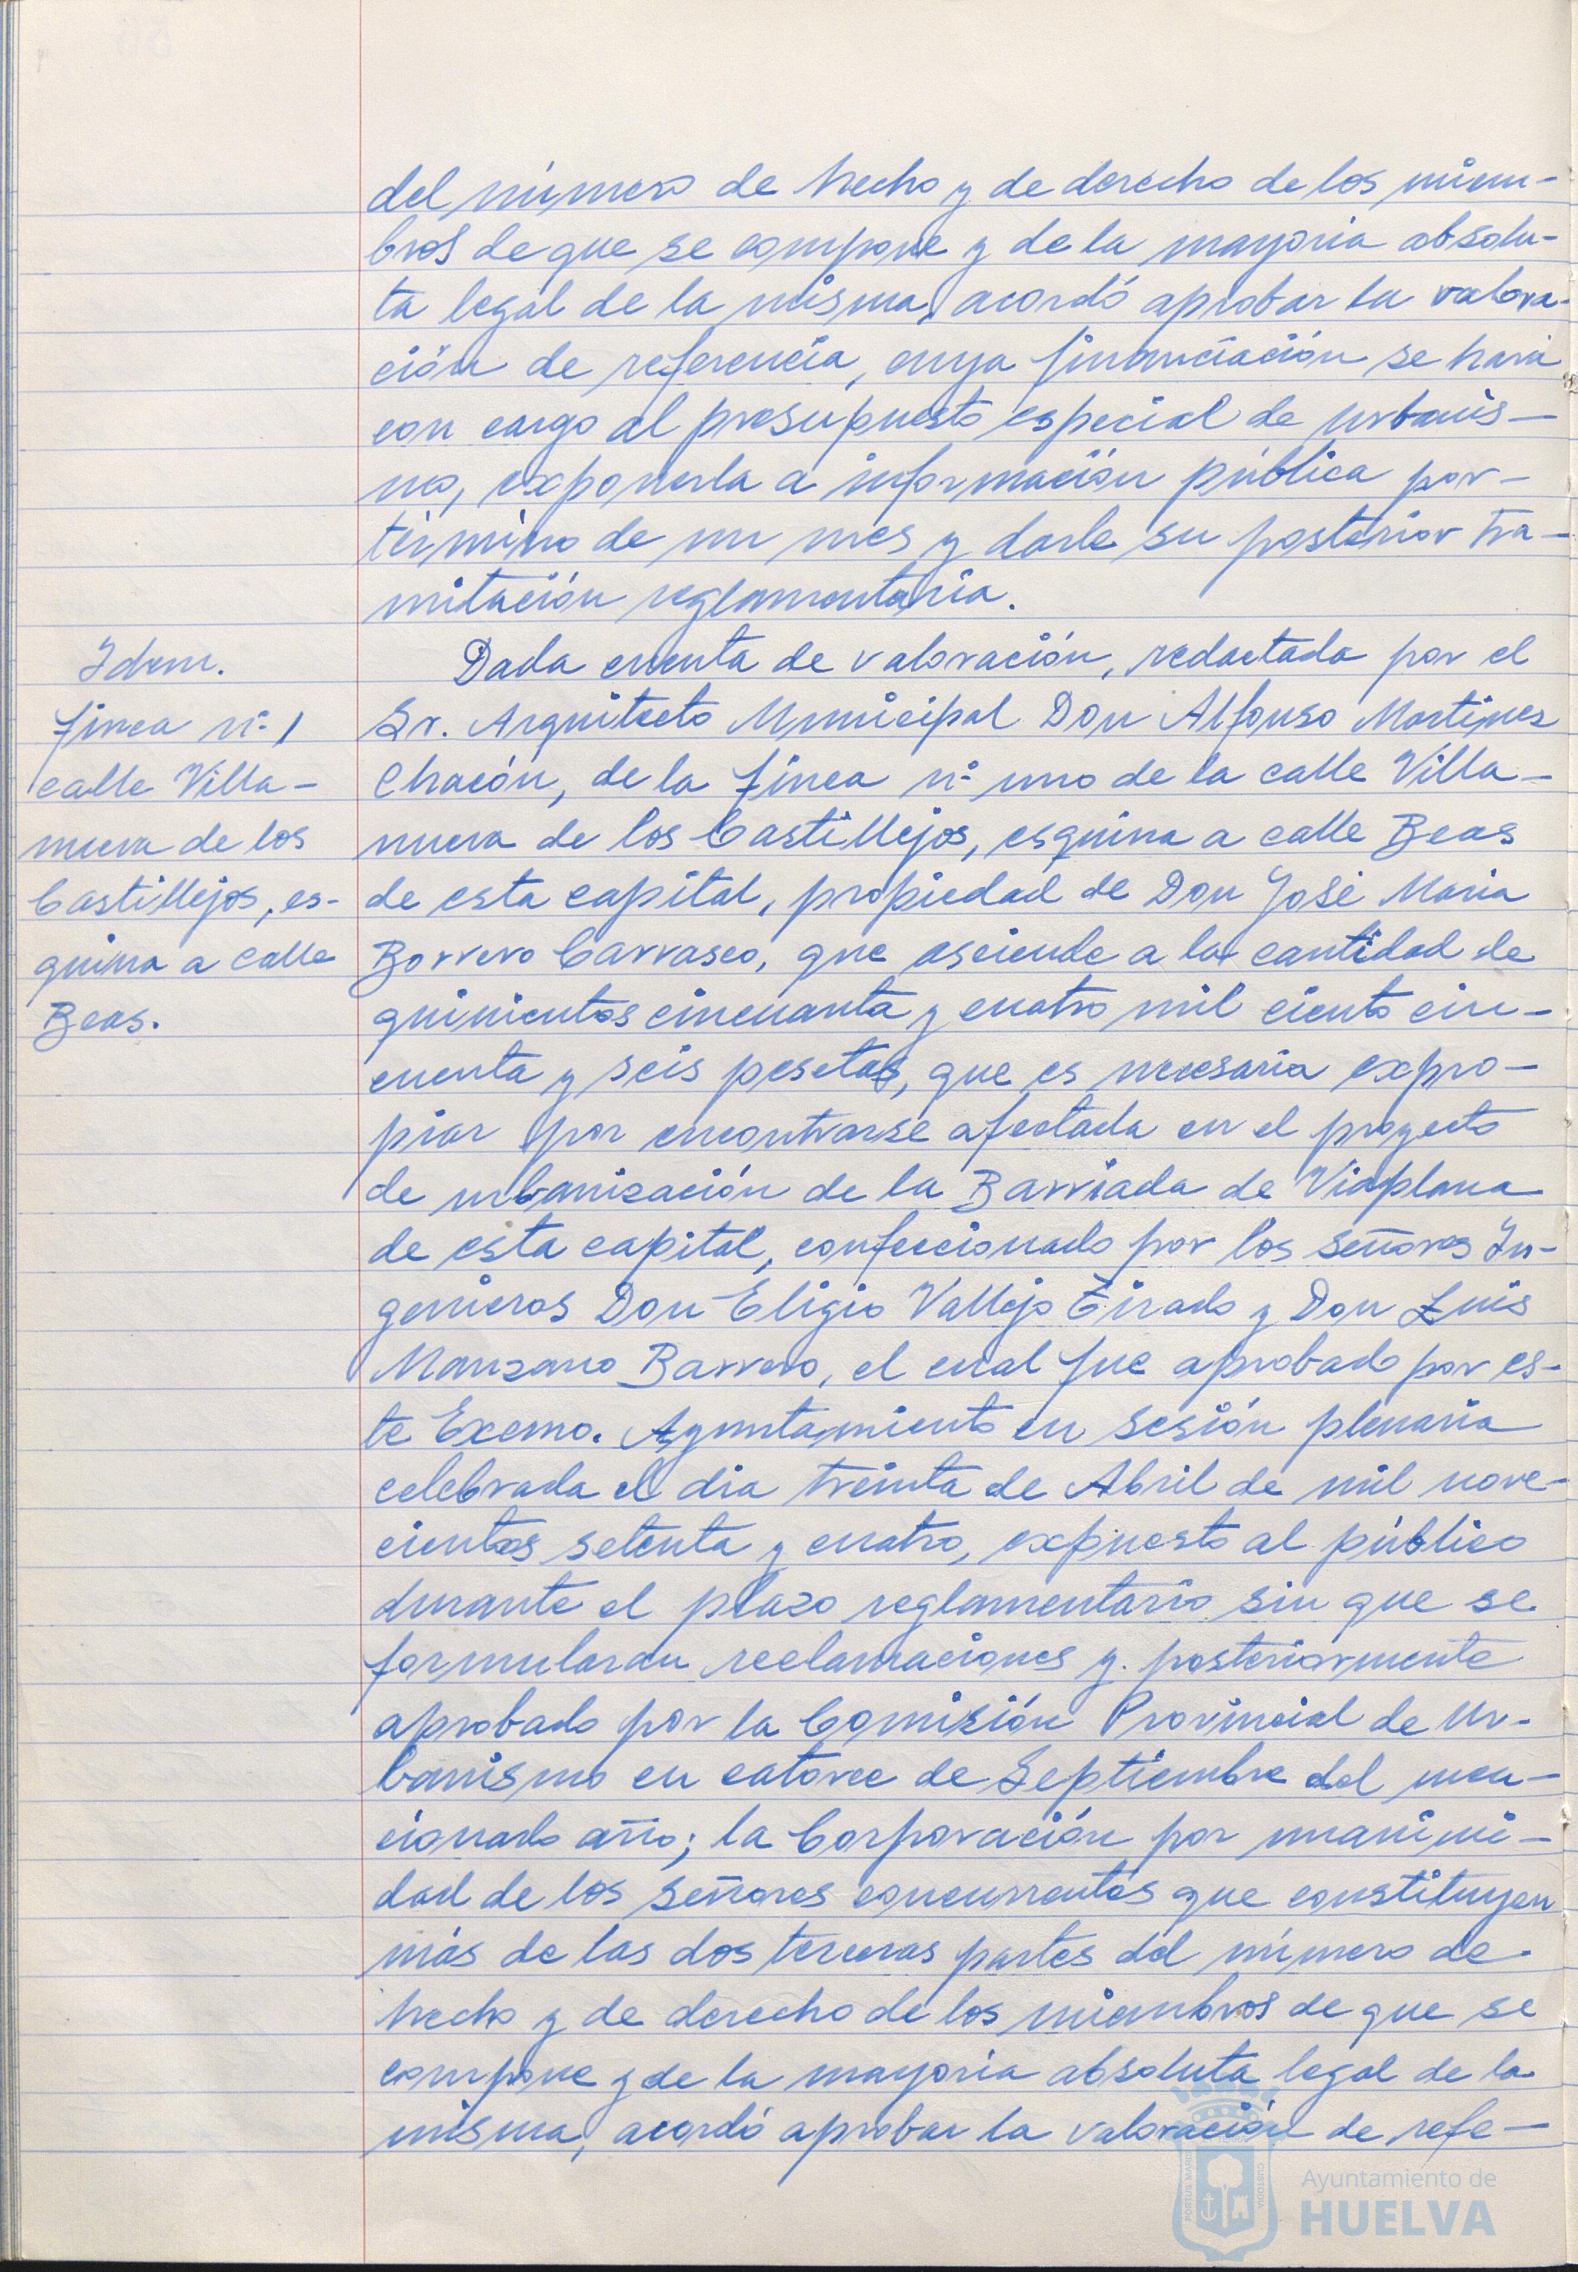 del número de hecho y de derecho de los miem-
bros de que se compone y de la mayoria absolu-
ta legal de la misma, acordó aprobar la valora-
ción de referencia, cuya financiación se hará
con cargo al presupuesto especial de urbanis-
mo, exponerla a información pública por
término de un mes y darle su posterior tra-
mitación reglamentaria.
Idem.
finca nº 1
calle Villa-
nueva de los
Castillejos, es-
quina a calle
Beas.
Dada cuenta de valoración, redactada por el
Sr. Arquitecto Municipal Don Alfonso Martinez
Chacón, de la finca nº uno de la calle Villa-
nueva de los Castillejos, esquina a calle Beas
de esta capital, propiedad de Don José Maria
Borrero Carrasco, que asciende a la cantidad de
quinientos cincuenta y cuatro mil ciento cin-
cuenta y seis pesetas, que es necesaria expro-
piar por encontrarse afectada en el proyecto
de urbanización de la Barriada de Viaplana
de esta capital, confeccionado por los señores In-
genieros Don Eligio Vallejo Tirado y Don Luis
Manzano Barrero, el cual fue aprobado por es-
te Excmo. Ayuntamiento en sesión plenaria
celebrada el dia treinta de Abril de mil nove-
cientos setenta y cuatro, expuesto al público
durante el plazo reglamentario sin que se
formularan reclamaciones y posteriormente
aprobado por la Comisión Provincial de Ur-
banismo en catorce de Septiembre del men-
cionado año; la Corporación por unanimi-
dad de los señores concurrentes que constituyen
más de las dos terceras partes del número de
hecho y de derecho de los miembros de que se
compone y de la mayoria absoluta legal de la
misma, acordó aprobar la valoración de refe-
Ayuntamiento de
HUELVA